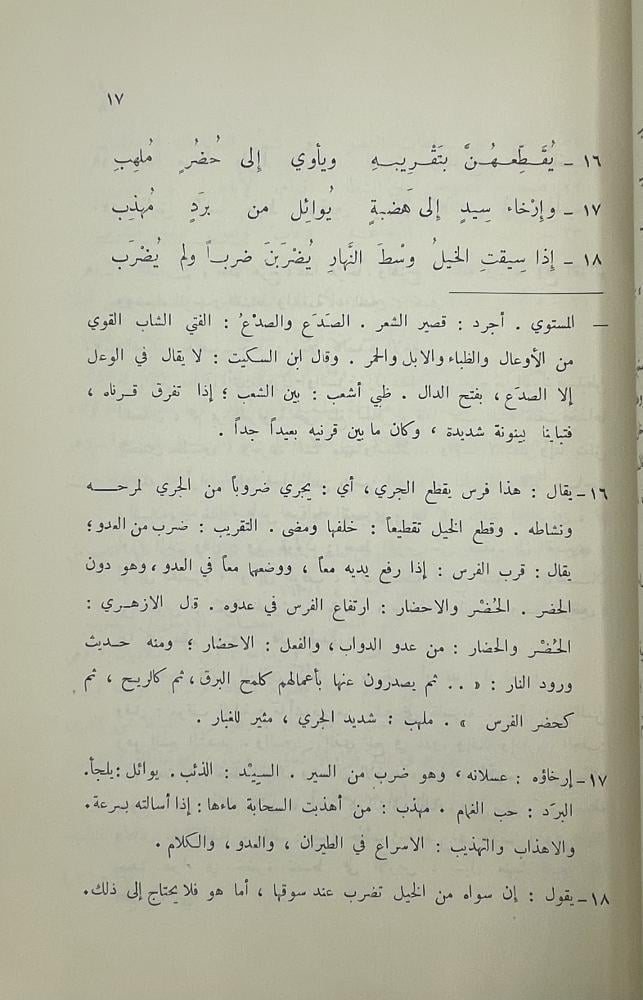 ١٧
١٦ – يُقَطِّعهُنَّ بتَقْرِيبهِ ويأوي إلى حُضُرٍ مُلهِبِ
١٧ – وإرْخاء سِيدٍ إلى هَضبةٍ يُوائِل من برَدٍ مُهذِب
١٨ – إذا سِيقتِ الخيلُ وسْطَ النَّهارِ يُضْرَبنَ ضرباً ولم يُضْرَب
— المستوي . أجرد : قصير الشعر . الصَدَع والصدْعُ : الفتي الشاب القوي
من الأوعال والظباء والابل والحمر . وقال ابن السكيت : لا يقال في الوعل
إلا الصدَع ، بفتح الدال . ظبي أشعب : بين الشعب ؛ إذا تفرق قرناه ،
فتباينا بينونة شديدة ، وكان ما بين قرنيه بعيداً جداً .
١٦ – يقال : هذا فرس يقطع الجري ، أي : يجري ضروباً من الجري لمرحه
ونشاطه . وقطع الخيل تقطيعاً : خلفها ومضى . التقريب : ضرب من العدو ؛
يقال : قرب الفرس : إذا رفع يديه معاً ، ووضعها معاً في العدو ، وهو دون
الحضر . الحُضْر والاحضار : ارتفاع الفرس في عدوه . قال الازهري :
الحُضْر والحضار : من عدو الدواب ، والفعل : الاحضار ؛ ومنه حديث
ورود النار : « .. ثم يصدرون عنها بأعمالهم كلمح البرق ، ثم كالريح ، ثم
كحضر الفرس » . ملهب : شديد الجري ، مثير للغبار .
١٧ – إرخاؤه : عسلانه ، وهو ضرب من السير . السِيْد : الذئب . يوائل : يلجأ .
البرَد : حب الغمام . مهذب : من أهذبت السحابة ماءها : إذا أسالته بسرعة .
والاهذاب والتهذيب : الاسراع في الطيران ، والعدو ، والكلام .
١٨ – يقول : إن سواه من الخيل تضرب عند سوقها ، أما هو فلا يحتاج إلى ذلك .